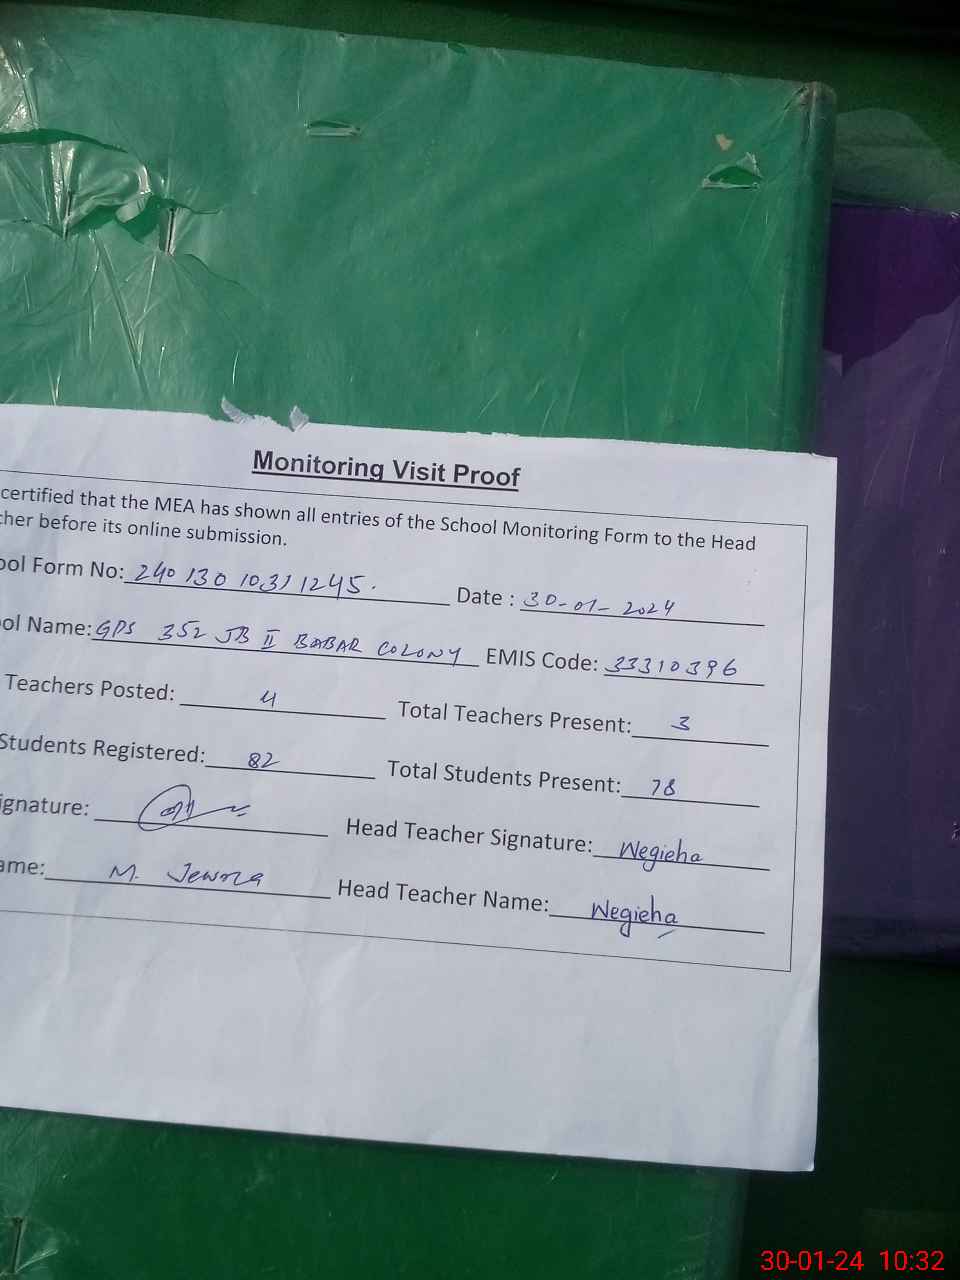 Monitoring Visit Proof
certified that the MEA has shown all entries of the School Monitoring Form to the Head
cher before its online submission.
ool Form No: 240130 1031 1245. Date : 30-01-2024
ol Name: GPS 352 JB II BABAR COLONY EMIS Code: 33310396
Teachers Posted: 4 Total Teachers Present: 3
Students Registered: 82 Total Students Present: 78
ignature: Head Teacher Signature: Wegieha
ame: M. Head Teacher Name: Wegieha
30-01-24 10:32